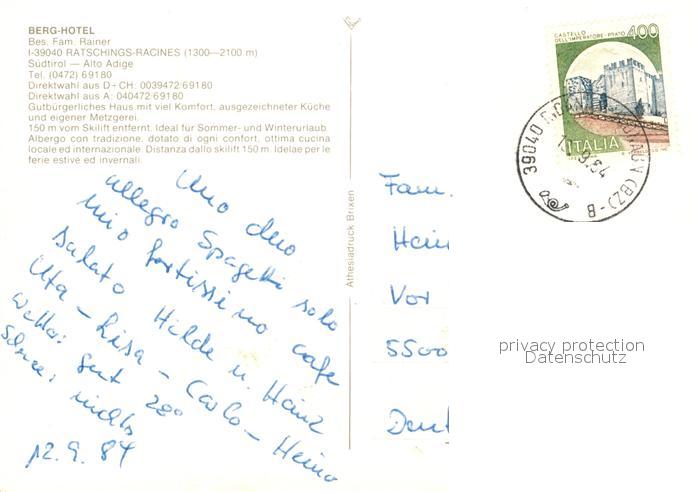 BERG-HOTEL
Bes. Fam. Rainer
I-39040 RATSCHINGS-RACINES (1300—2100 m)
Südtirol — Alto Adige
Tel. (0472) 69180
Direktwahl aus D+CH: 0039472/69180
Direktwahl aus A: 040472/69180
Gutbürgerliches Haus mit viel Komfort, ausgezeichneter Küche
und eigener Metzgerei.
150 m vom Skilift entfernt. Ideal für Sommer- und Winterurlaub.
Albergo con tradizione, dotato di ogni confort, ottima cucina
locale ed internazionale. Distanza dallo skilift 150 m. Idelae per le
ferie estive ed invernali.
Uno duo
allegro Spagetti solo
mio fortissimo cafe
salato Hilde u. Heinz
Uta - Lisa - Carlo - Heino
Wetter: gut 28°
Schnee: nichts
12.9.84
Athesiadruck Brixen
CASTELLO
DELL'IMPERATORE - PRATO
400
ITALIA
39040
(BZ)-B
Fam.
Hein
Vor
5500
Deut
privacy protection
Datenschutz